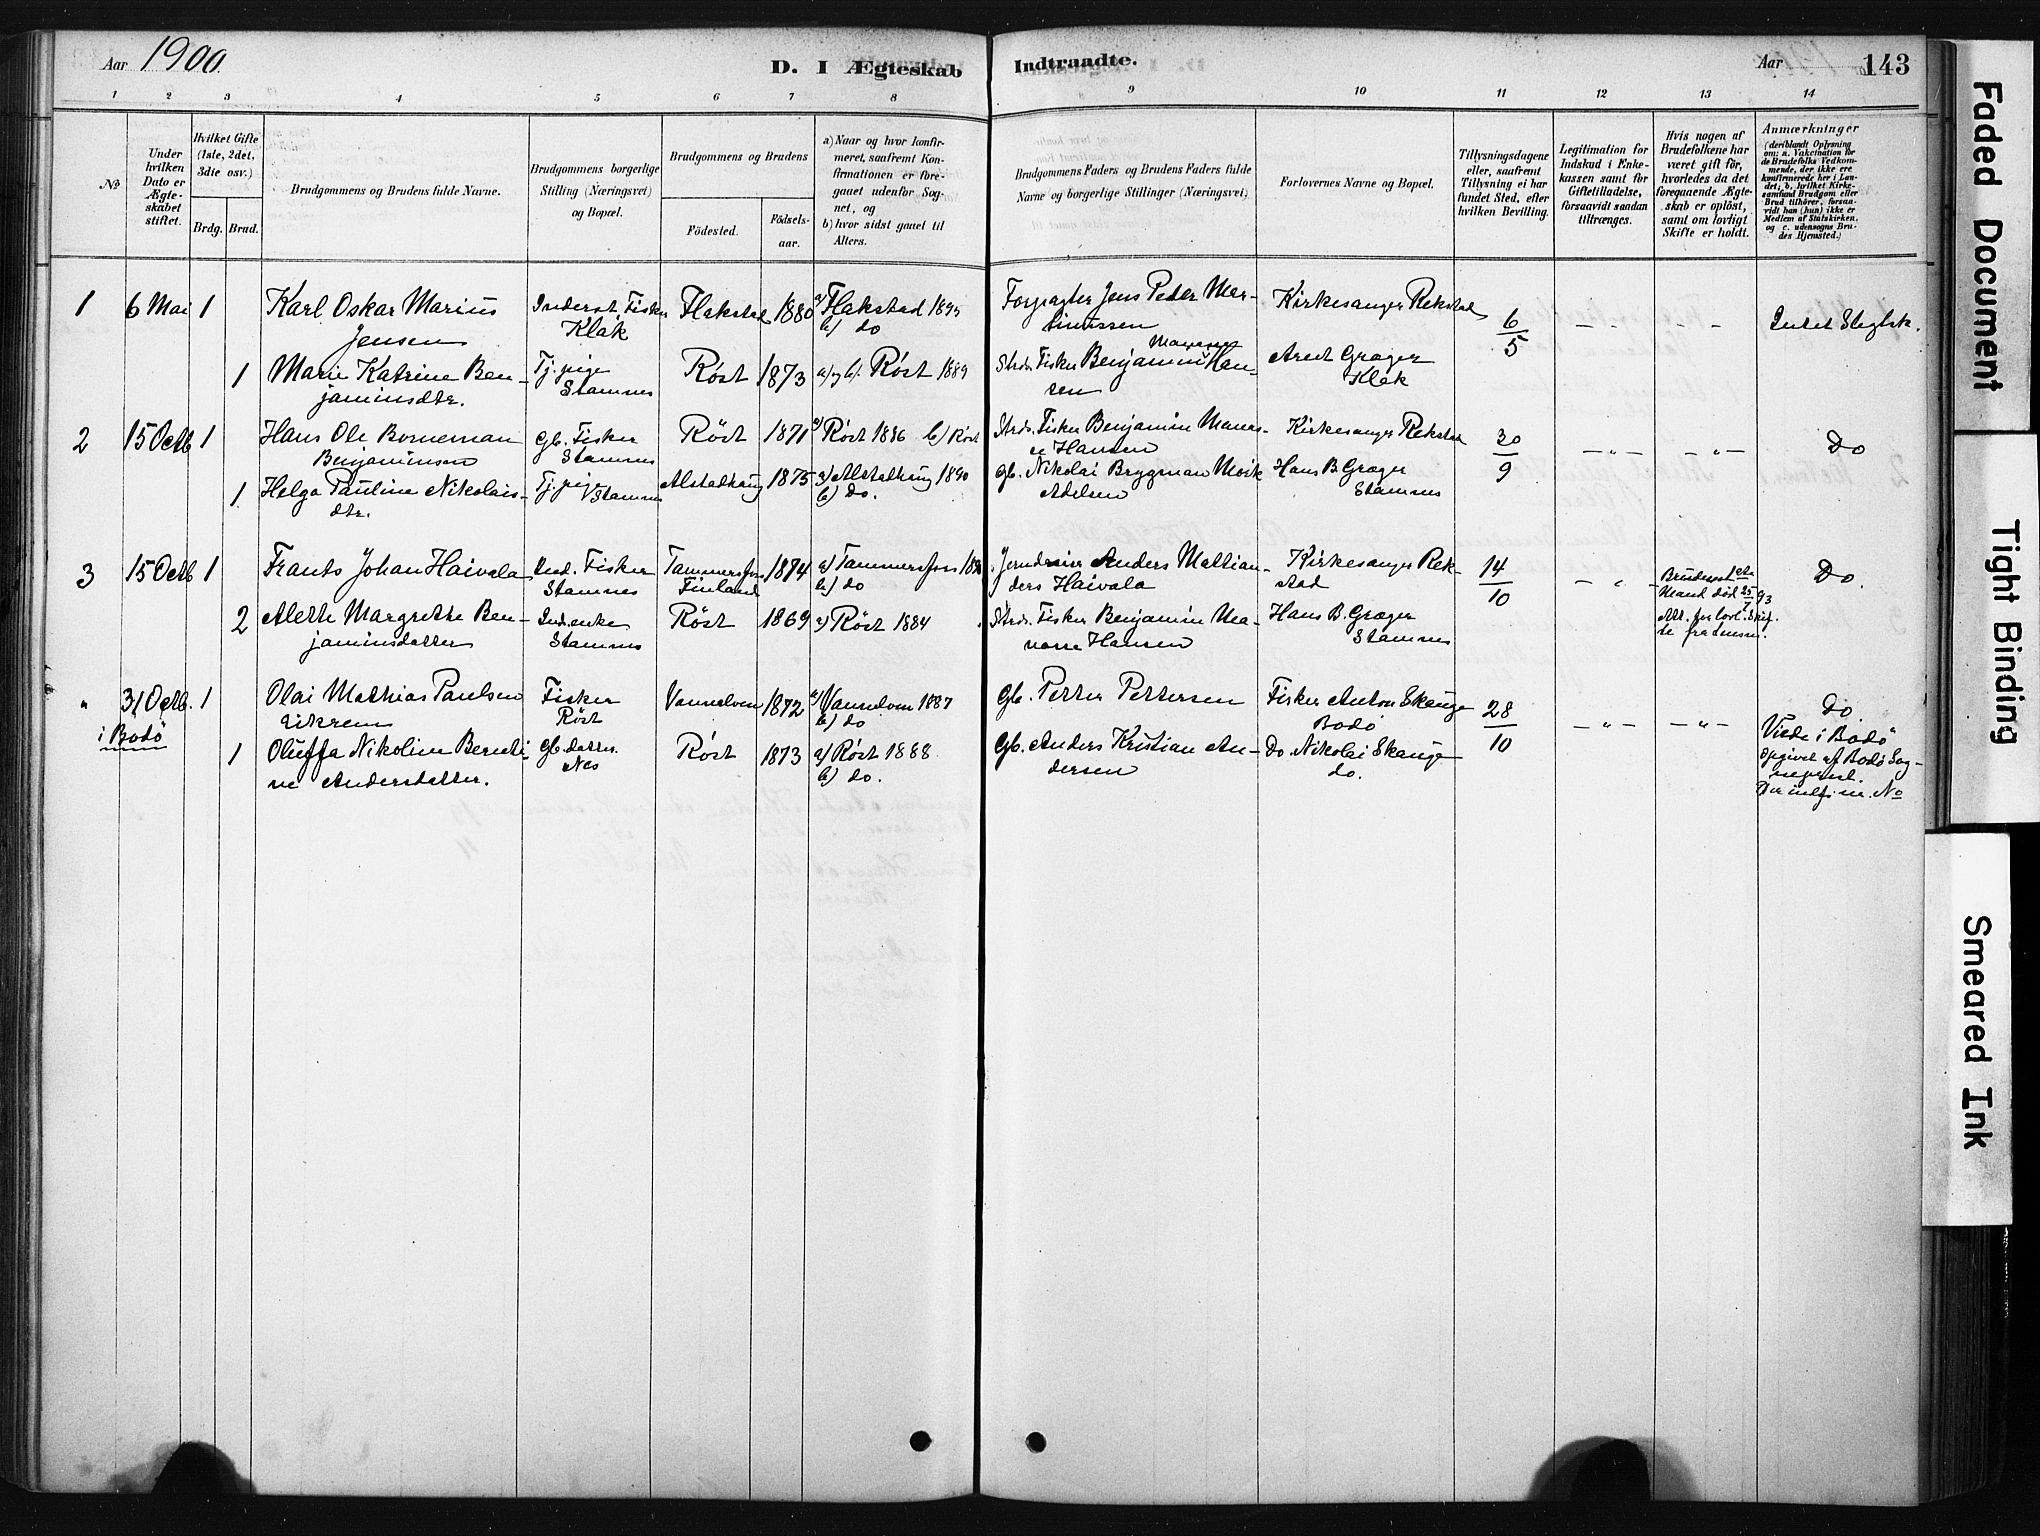 Aar 1900
D. I Ægteskab Indtraadte.
Aar 143
1 2 3 4 5 6 7 8 9 10 11 12 13 14
No
Under
hvilken
Dato er
Ægte-
skabet
stiftet.
Hvilket Gifte
(1ste, 2det,
3die osv.)
Brdg. Brud.
Brudgommens og Brudens fulde Navne.
Brudgommens borgerlige
Stilling (Næringsvei)
og Bopæl.
Brudgommens og Brudens
Födested.
Födsels-
aar.
a) Naar og hvor konfir-
meret, saafremt Kon-
firmationen er fore-
gaaet udenfor Sog-
net, og
b) hvor sidst gaaet til
Alters.
Brudgommens Faders og Brudens Faders fulde
Navne og borgerlige Stillinger (Næringsvei)
Forlovernes Navne og Bopæl.
Tillysningsdagene
eller, saafremt
Tillysning ei har
fundet Sted, efter
hvilken Bevilling.
Legitimation for
Indskud i Enke-
kassen samt for
Giftetilladelse,
forsaavidt saadan
tiltrænges.
Hvis nogen af
Brudefolkene har
været gift för,
hvorledes da det
foregaaende Ægte-
skab er oplöst,
samt om lovligt
Skifte er holdt.
Anmærkninger
(deriblandt Oplysning
om: a. Vakcination for
de Brudefolks Vedkom-
mende, der ikke ere
konfirmerede her i Lan-
det; b. hvilket Kirke-
samfund Brudgom eller
Brud tilhörer, forsaa-
vidt han (hun) ikke er
Medlem af Statskirken,
og c. udensogns Bru-
des Hjemsted.)
1 6 Mai 1 Karl Oskar Marius
Jensen
Inderst, Fisker
Klak
Flakstad 1880 a) Flakstad 1895
b) do
Forpagter Jens Peder Mar-
tinussen
Kirkesanger Rekstad
6/5 - - - - Intet Slegtsk.
1 Marie Katrine Ben-
jaminsdtr.
Tj. pige
Stamnes
Röst 1873 a) og b). Röst 1889
Strds. Fisker Benjamin Han-
sen
Arent Græger
Klak
2 15 Octb 1 Hans Ole Borneman
Benjaminsen
Gb. Fisker
Stamnes
Röst 1871 a) Röst 1886 b) Röst
Strds. Fisker Benjamin Manas-
se Hansen
Kirkesanger Rekstad
30/9 - " - - " - Do
1 Helga Pauline Nikolais-
dtr.
Tj. pige
Stamnes
Alstadhaug 1875 a) Alstadhaug 1890
b) do.
Gb. Nikolai Brygman Moik
Adelsen
Hans B. Græger
Stamnes
3 15 Octb 1 Frants Johan Haivala
Ind. Fisker
Stamnes
Tammersfors
Finland
1874 a) Tammersfors
b) do
Anders Mattian-
ders Haivala
Kirkesanger Rek-
stad
14/10 - " - Do.
Brudens 1ste
Mand död 25/1 93
Att. for lovl. Skif-
te fra Lensm.
2 Alette Margrethe Ben-
jaminsdatter
Ind. enke
Stamnes
Röst 1869 a) Röst 1884
Strds. Fisker Benjamin Ma-
nasse Hansen
Hans B. Græger
Stamnes
" 31 Octb. 1 Olai Mathias Paulsen
Eikrem
i Bodö
Fisker
Röst
Vanselven 1872 a) Vanselven 1887
b) do
Gb. Petter Pettersen
Fisker Anton Skauge
Bodö
28/10 - " - - " - Do
Viede i Bodö
Opgivet af Bodö Sog-
neprest.
Der indf. nr. No
1 Oluffa Nikoline Bernti-
ne Andersdatter.
Gb. datter.
Nes
Röst 1873 a) Röst 1888
b) do.
Gb. Anders Kristian An-
dersen
Do. Nikolai Skauge
do.
Faded Document
Tight Binding
Smeared Ink